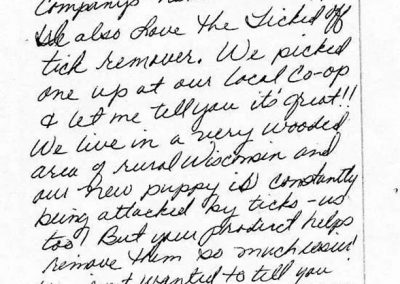 Company's
We also love the Ticked Off
tick remover. We picked
one up at our local Co-op
& let me tell you it's great!!
We live in a very wooded
area of rural Wisconsin and
our new puppy is constantly
being attacked by ticks - us
too! But your product helps
remove them so much easier!
wanted to tell you